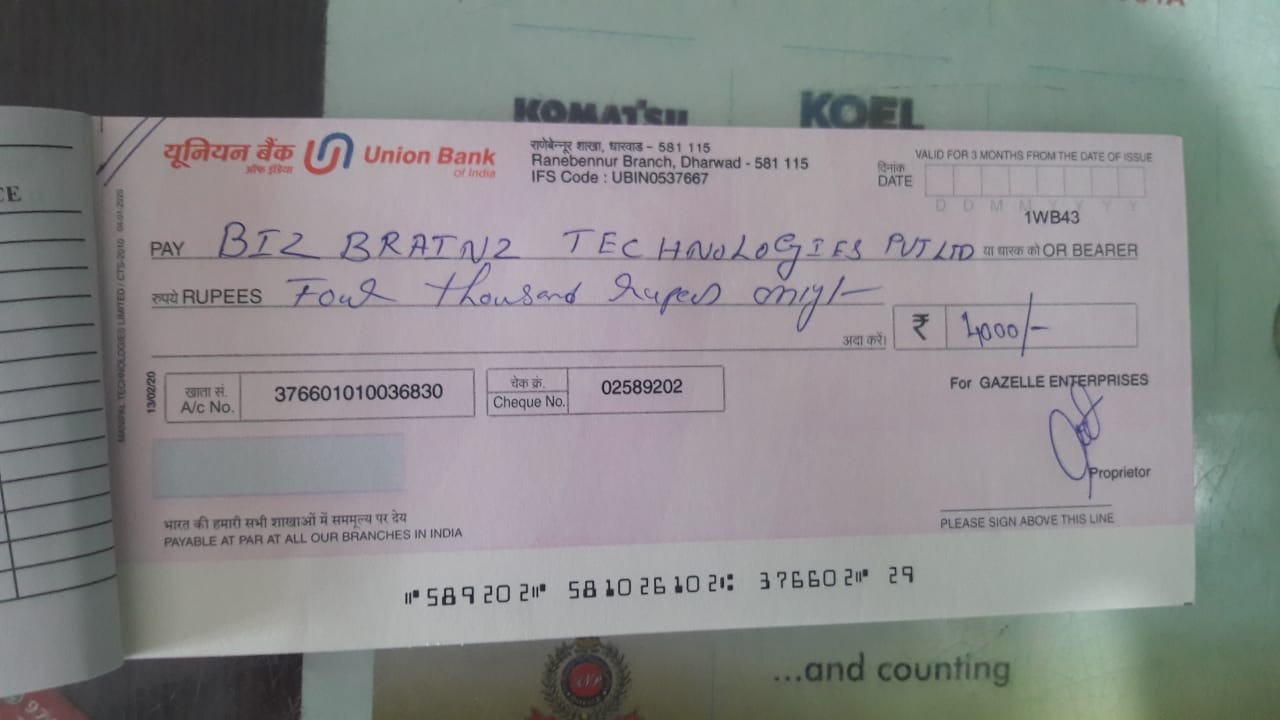 KOMATSU KOEL
यूनियन बैंक Union Bank
ऑफ इंडिया of India
राणेबेन्नूर शाखा, धारवाड - 581 115
Ranebennur Branch, Dharwad - 581 115
IFS Code : UBIN0537667
VALID FOR 3 MONTHS FROM THE DATE OF ISSUE
दिनांक
DATE
D D M M Y Y Y Y
1WB43
PAY BIZ BRAINZ TECHNOLOGIES PVT LTD या धारक को OR BEARER
रुपये RUPEES Four thousand rupees only/-
अदा करें। ₹ 4000/-
MANIPAL TECHNOLOGIES LIMITED / CTS-2010 04-01-2020
13/02/20
खाता सं.
A/c No. 376601010036830
चेक क्रं.
Cheque No. 02589202
For GAZELLE ENTERPRISES
Proprietor
PLEASE SIGN ABOVE THIS LINE
भारत की हमारी सभी शाखाओं में सममूल्य पर देय
PAYABLE AT PAR AT ALL OUR BRANCHES IN INDIA
⑈589202⑈ 581026102⑆ 376602⑈ 29
...and counting